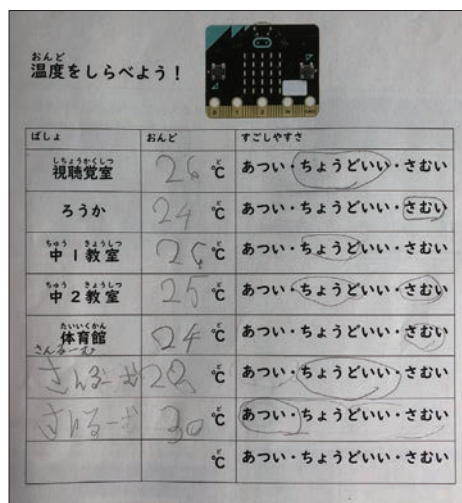 おんど
温度をしらべよう！
ばしょ おんど すごしやすさ
しちょうかくしつ
視聴覚室 26 ℃ あつい・ちょうどいい・さむい
ろうか 24 ℃ あつい・ちょうどいい・さむい
ちゅう きょうしつ
中1教室 26 ℃ あつい・ちょうどいい・さむい
ちゅう きょうしつ
中2教室 25 ℃ あつい・ちょうどいい・さむい
たいいくかん
体育館 24 ℃ あつい・ちょうどいい・さむい
さんるーむ
さんるーむ 28 ℃ あつい・ちょうどいい・さむい
さんるーむ 30 ℃ あつい・ちょうどいい・さむい
℃ あつい・ちょうどいい・さむい